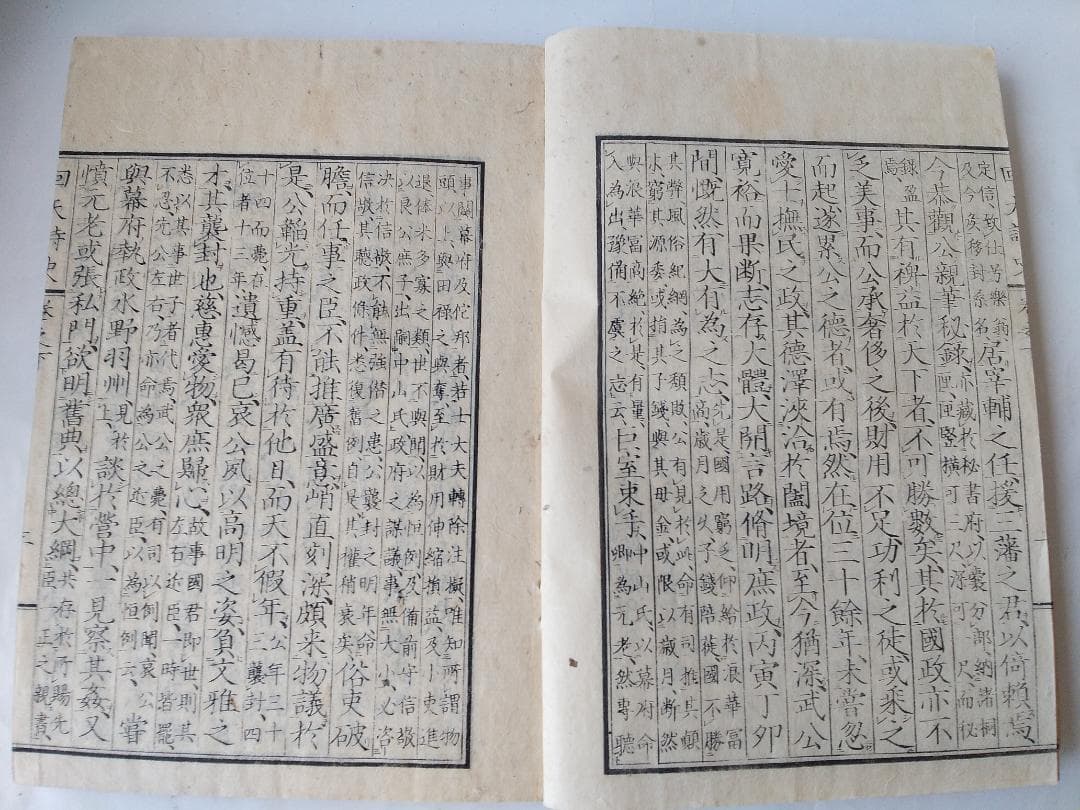 定信致仕号樂翁、
及今侯移封桑名、居宰輔之任、援三藩之君、以倚賴焉、
今恭觀公親筆秘錄、亦藏於秘書府、以囊分部、納諸桐
匣、匣竪橫可二尺、深可一尺、而秘
錄盈焉、其有裨益於天下者、不可勝數矣、其於國政亦不
乏美事、而公承奢侈之後、財用不足、功利之徒、或乘之
而起、遂累公之德者、或有焉、然在位三十餘年、未嘗忽
愛士撫民之政、其德澤浹洽於闔境者、至今猶深、武公
寬裕而果断、志存大體、大開言路、脩明庶政、丙寅丁卯
間、慨然有大有為之志、先是國用窮乏、仰給於浪華富
高、歲月之久、子錢陪蓰、國不勝
其弊、風俗紀綱為之頹敗、公有見於此、命有司推其顛
末、窮其源委、或指其子錢、與其母金、或限以歲月、断然
與浪華富商絕、於是有量
入為出、豫備不虞之志云、巨室束手、中山氏以幕府命
卿為元老、然專聽
事關幕府及佗邦者、若士大夫轉除注擬、唯知所謂物
頭以上、與田祿之與奪、至於財用伸縮損益、及小吏進
退、俸米多寡之類、世不與聞、以為恒例、及備前守信敬
以良公庶子、出嗣中山氏、政府之謀議、事無大小、必咨
決於信敬、不能無強僭之患、公襲封之明年、命
信敬其聽政條件、悉復舊例、自是其權稍衰矣、俗吏破
膽、而任事之臣、不能推廣盛意、峭直刻深、頗来物議、於
是、公韜光持重、蓋有待於他日、而天不假年、公年三十
三襲封、四
十四而薨、在
位者十三年、遺憾曷已、哀公夙以高明之姿、負文雅之
才、其襲封也、慈惠愛物、衆庶歸心、故事國君即世、則其
左右近臣、一時皆罷、
悉以其事世子者代焉、武公之薨、有司以例聞、哀公
不忍、先公左右、乃亦命為公之近臣、以為恒例云、嘗
與幕府執政水野羽州、見於上、談於營中、一見察其姦、又
憤元老或張私門、欲明舊典、以總大綱、共存於所賜先
臣一正之親書
回天詩史 卷之下 三